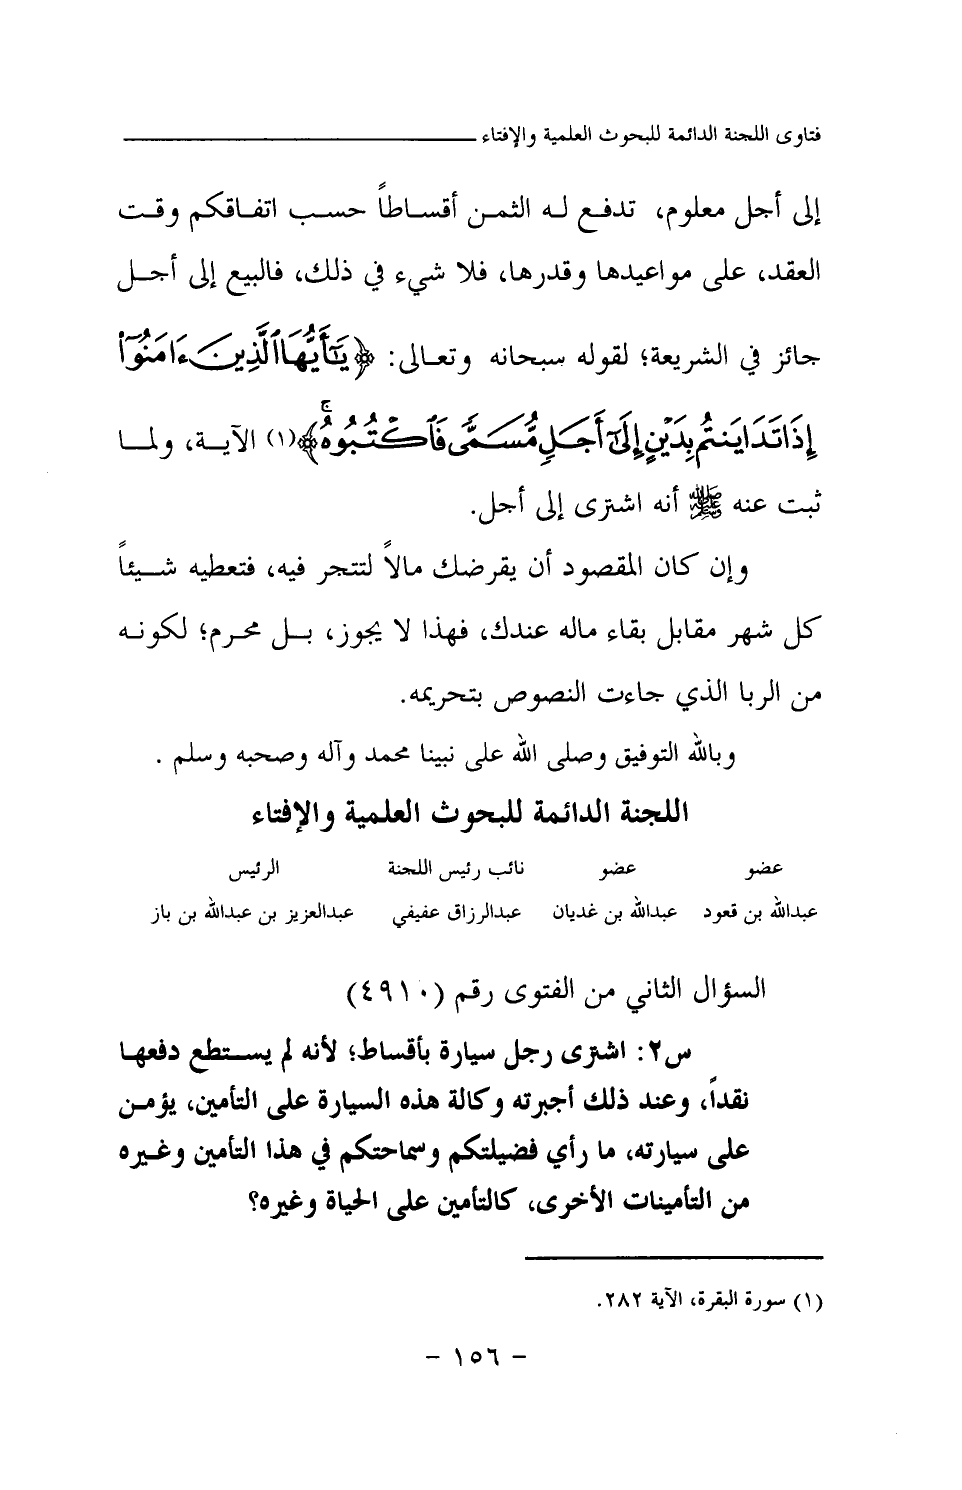 فتاوى اللجنة الدائمة للبحوث العلمية والإفتاء
إلى أجل معلوم، تدفع له الثمن أقساطاً حسب اتفاقكم وقت
العقد، على مواعيدها وقدرها، فلا شيء في ذلك، فالبيع إلى أجل
جائز في الشريعة؛ لقوله سبحانه وتعالى: ﴿يَٰٓأَيُّهَا ٱلَّذِينَ ءَامَنُوٓا۟
إِذَا تَدَايَنتُم بِدَيْنٍ إِلَىٰٓ أَجَلٍ مُّسَمًّى فَٱكْتُبُوهُ ۚ﴾(١) الآية، ولما
ثبت عنه ﷺ أنه اشترى إلى أجل.
وإن كان المقصود أن يقرضك مالاً لتتجر فيه، فتعطيه شيئاً
كل شهر مقابل بقاء ماله عندك، فهذا لا يجوز، بل محرم؛ لكونه
من الربا الذي جاءت النصوص بتحريمه.
وبالله التوفيق وصلى الله على نبينا محمد وآله وصحبه وسلم .
اللجنة الدائمة للبحوث العلمية والإفتاء
عضو عضو نائب رئيس اللجنة الرئيس
عبدالله بن قعود عبدالله بن غديان عبدالرزاق عفيفي عبدالعزيز بن عبدالله بن باز
السؤال الثاني من الفتوى رقم (٤٩١٠)
س٢: اشترى رجل سيارة بأقساط؛ لأنه لم يستطع دفعها
نقداً، وعند ذلك أجبرته وكالة هذه السيارة على التأمين، يؤمن
على سيارته، ما رأي فضيلتكم وسماحتكم في هذا التأمين وغيره
من التأمينات الأخرى، كالتأمين على الحياة وغيره؟
(١) سورة البقرة، الآية ٢٨٢.
- ١٥٦ -